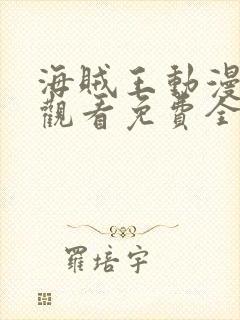 海賊王動漫
觀看免費全
羅培宇